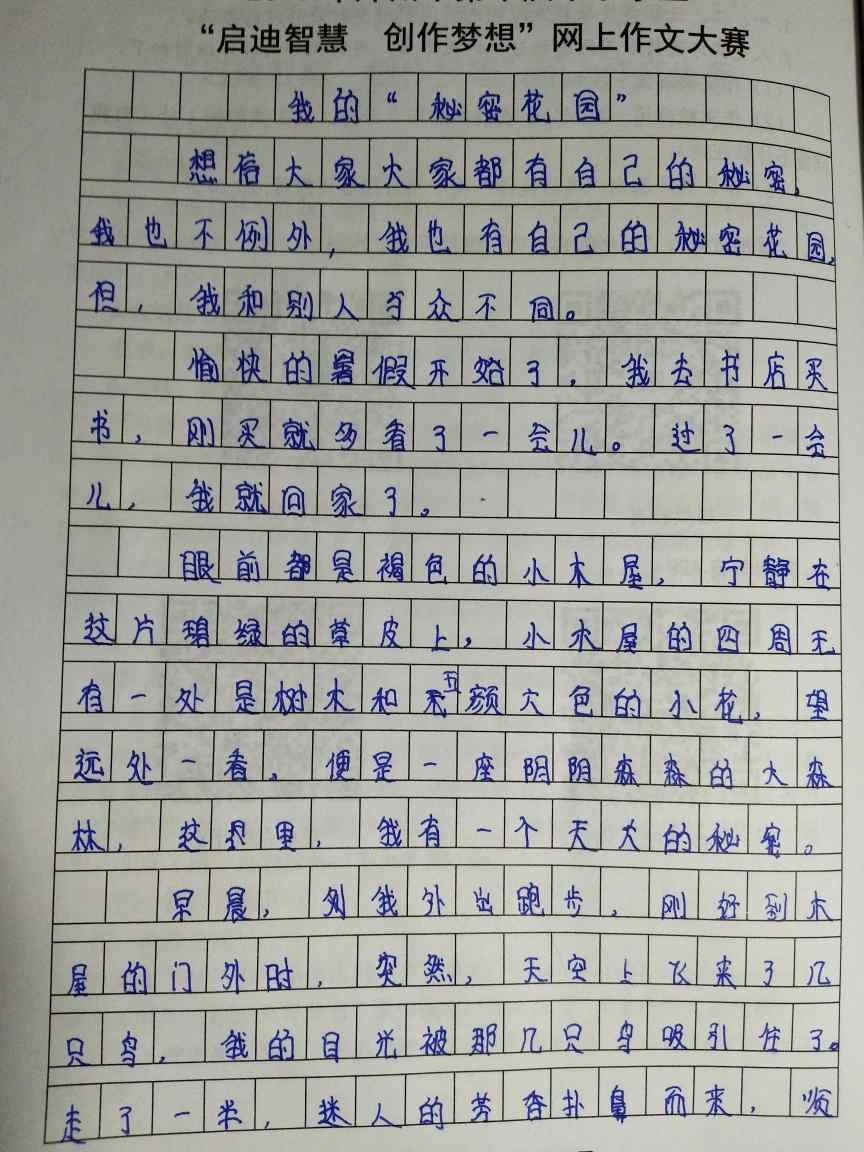 “启迪智慧 创作梦想”网上作文大赛
我的“秘密花园”
想信大家大家都有自己的秘密,
我也不例外,我也有自己的秘密花园,
但,我和别人与众不同。
愉快的暑假开始了,我去书店买
书,刚买就多看了一会儿。过了一会
儿,我就回家了。
眼前都是褐色的小木屋,宁静在
这片碧绿的草皮上,小木屋的四周无
有一处是树木和五颜六色的小花,望
远处一看,便是一座阴阴森森的大森
林,这里,我有一个天大的秘密。
早晨,我外出跑步,刚好到木
屋的门外时,突然,天空上飞来了几
只鸟,我的目光被那几只鸟吸引住了。
走了一半,迷人的芳香扑鼻而来,顺